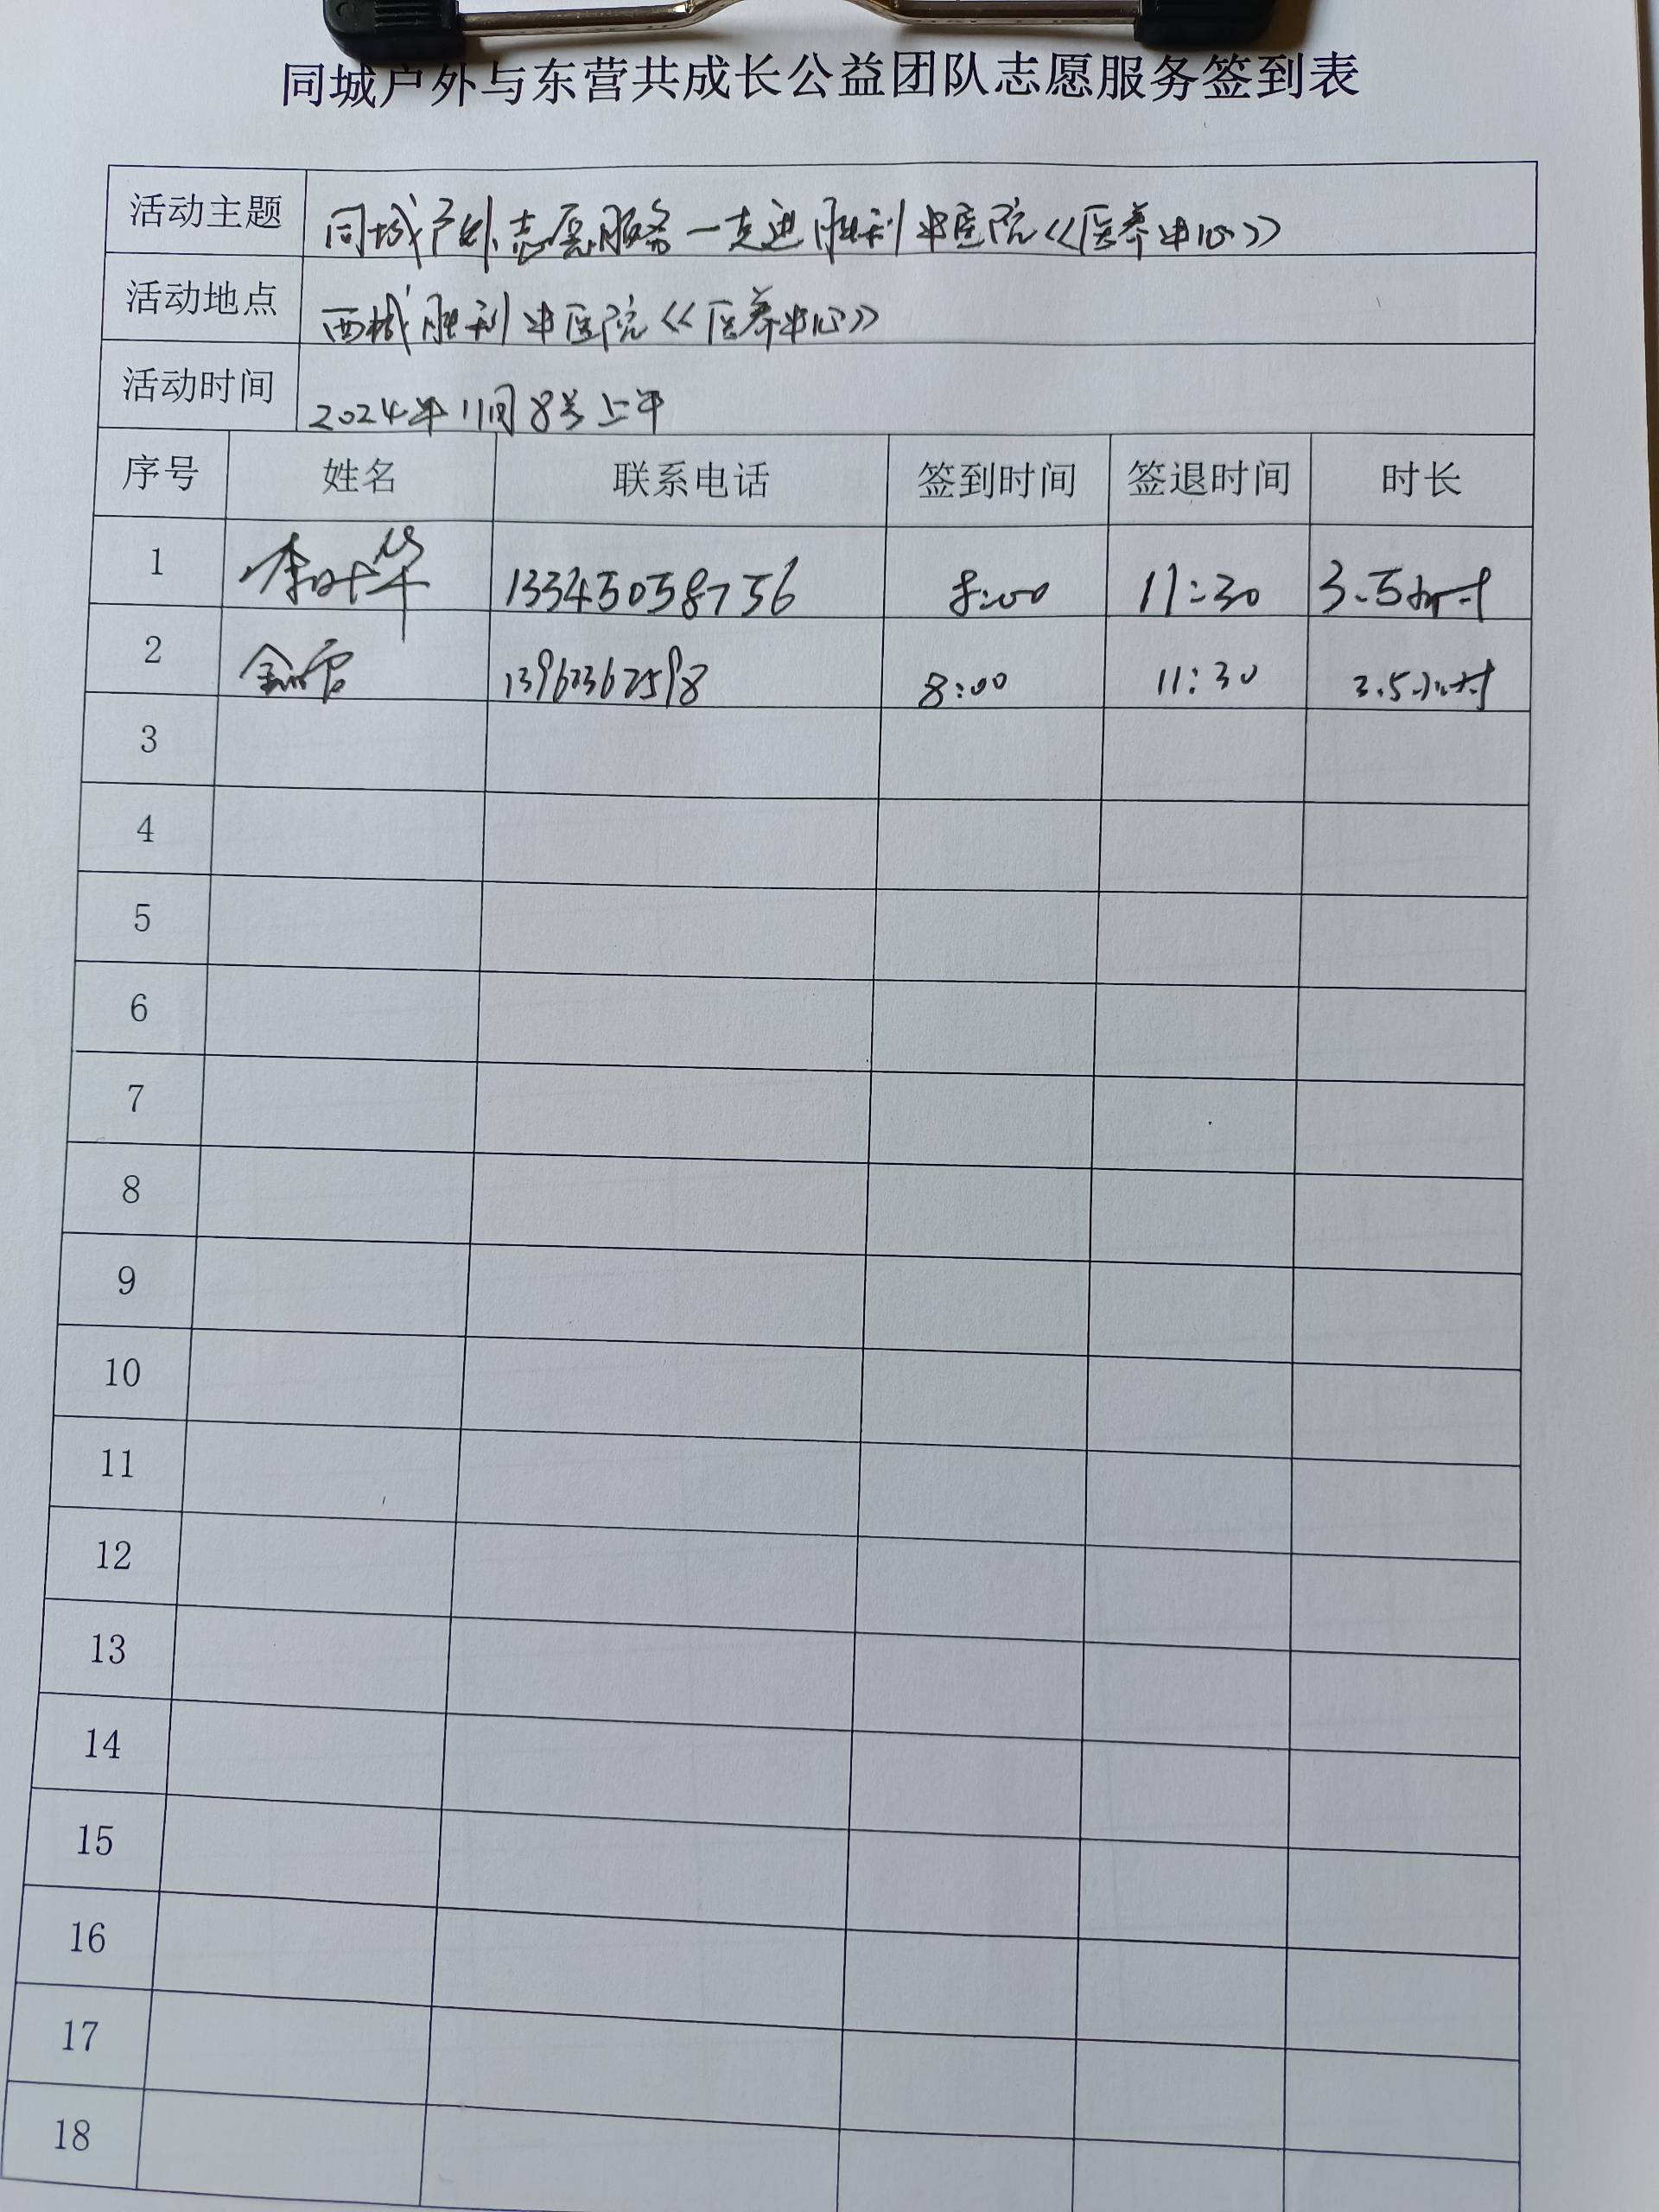 同城户外与东营共成长公益团队志愿服务签到表
活动主题 同城户外志愿服务一走进胜利中医院《医养中心》
活动地点 西城胜利中医院《医养中心》
活动时间 2024年11月8号上午
序号 姓名 联系电话 签到时间 签退时间 时长
1 李叶华 13345058756 8:00 11:30 3.5小时
2 13963362598 8:00 11:30 3.5小时
3
4
5
6
7
8
9
10
11
12
13
14
15
16
17
18